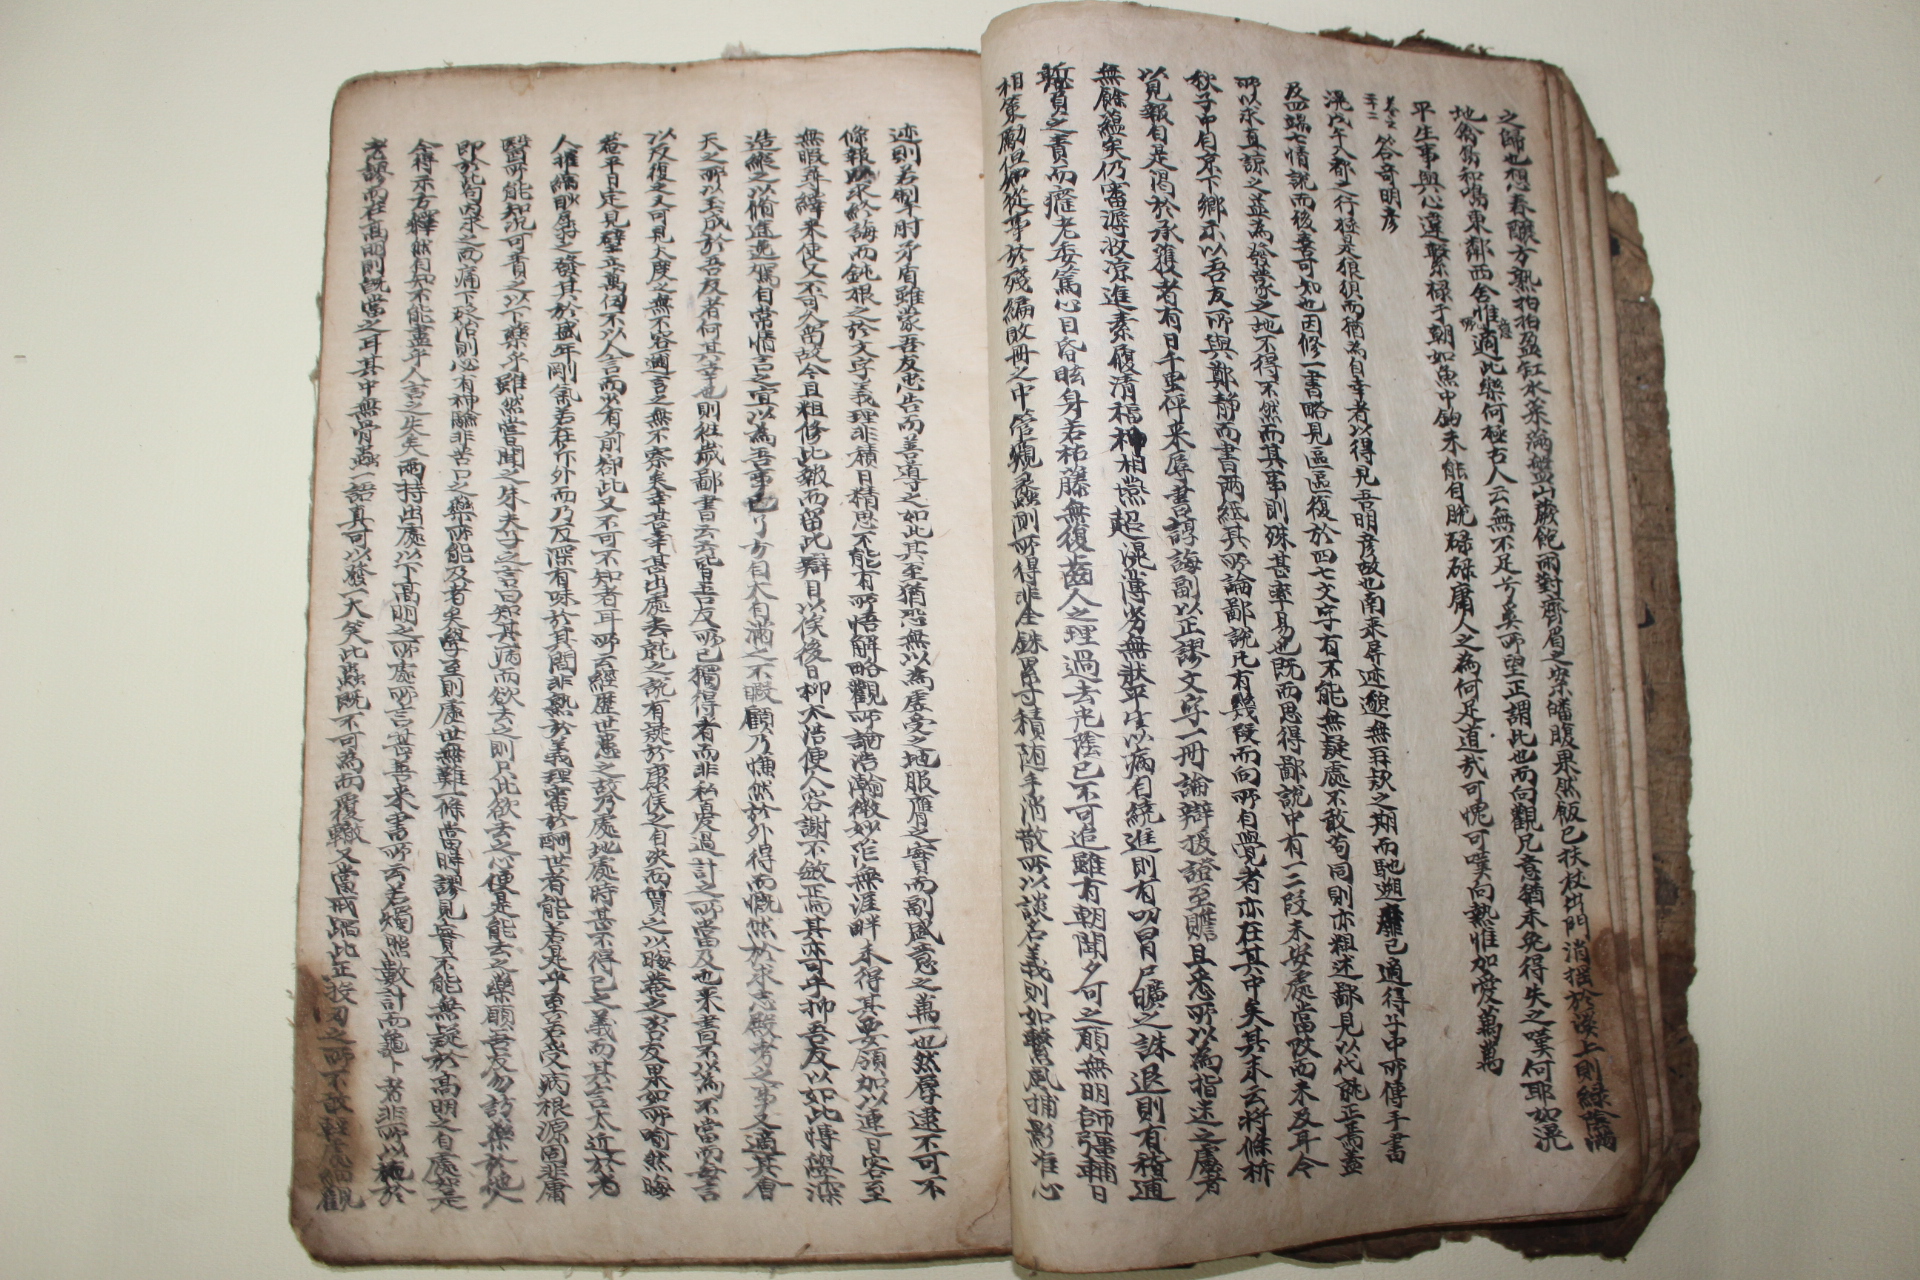 之歸也想春釀方熟拍拍盈缸水菜滿盤山蕨飽雨對齊眉之案皤腹果然飯已扶杖出門消搖於溪上則綠陰滿
地禽鳥和鳴東鄰西舍惟意所適此樂何極古人云無不足兮奚所望正謂此也而向觀兄意猶未免得失之嘆何耶如滉
平生事與心違繫祿于朝如魚中鉤未能自脫碌碌庸人之為何足道哉可愧可嘆向熱惟加愛萬萬
答奇明彥
滉戊午入都之行極是狼狽而猶為自幸者以得見吾明彥故也南來屏迹邈無再款之期而馳遡靡已適得子中所傳手書
及四端七情說而後喜可知也因修一書略見區區復於四七文字有不能無疑處不敢苟同則亦粗述鄙見以代就正焉蓋
所以求直諒之益為發蒙之地不得不然而其事則殊甚率易也既而思得鄙說中有一二段未安處當改而未及耳今
秋子中自京下鄉示以吾友所與鄭靜而書兩紙其所論鄙說凡有幾段而向所自覺者亦在其中矣其末云將條析
以見報自是渴於承獲者有日千里伻來辱書諄誨副以正謬文字一冊論辯援證至贍且悉所以為指迷之慮者
無餘蘊矣仍審潯收涼進素履清福神相爔超滉薄劣無狀平生以病自繞進則有叨冒尸曠之誅退則有稽逋
慙負之責而癃老委篤心目昏眩身若枯藤無復齒人之理過去光陰已不可追雖有朝聞夕可之願無明師強輔日
相策勵但知從事於殘編敗冊之中管窺蠡測所得非全銖累寸積隨手消散所以談名義則如繫風捕影准心
迹則若制肘矛盾雖蒙吾友忠告而善道之如此其至猶恐無以為虛受之地服膺之實而副盛意之萬一也然辱逮不可不
條報踐求終誨而鈍根之於文字義理非積日精思不能有所悟解略觀所論浩瀚微妙茫無涯畔未得其要領加以連日客至
無暇尋繹來使又不可久留故今且粗修此報而留此辯目以俟後日抑不浩使人容謝不敏正而其亦可乎抑吾友以如此博學深
造縱之以脩途逸駕自常情言之宜以為吾事已了方自大自滿之不暇顧乃慊然於外得而慨然於求志厥考之事又適其會
天之所以玉成於吾友者何其幸也則往歲鄙書云云皆吾友所已獨得者而非私憂過計之所當及也來書不以為不當而吾言
以反復之又可見大度之無不容邇言之無不察矣幸甚幸甚出處去就之說有疑於康侯之自決而質之以晦菴之吾友果如所喻然晦
菴平日定見壁立萬仞不以人言而少有前却此又不可不知者耳所云經歷世患之故乃處地處時甚不得已之義而其言太近於老
人摧縮耿屏之發其於盛年剛氣若在所外而乃反深有味於其間非熟於義理審於酬世者能若是乎至若受病根源固非庸
醫所能知況可責之以下藥乎雖然嘗聞之朱夫子之言曰知其病而欲去之則只此欲去之心便是能去之藥願吾友勿訪藥於他人
即於此句內求之而痛下砭治則必有神驗非苦口之藥所能及者矣學至則處世無難一條當時謬見實不能無疑於高明之自處然是
今得示方釋然自知不能盡乎人言之失矣兩持出處以下高明之所處所言甚善來書所云若燭照數計而龜卜者非所以施於
老謬而在高明則旣當之耳其中無骨蟲一語真可以發一大笑此蟲既不可為而覆轍又當戒蹈此正投刃之所不敢輕處細觀